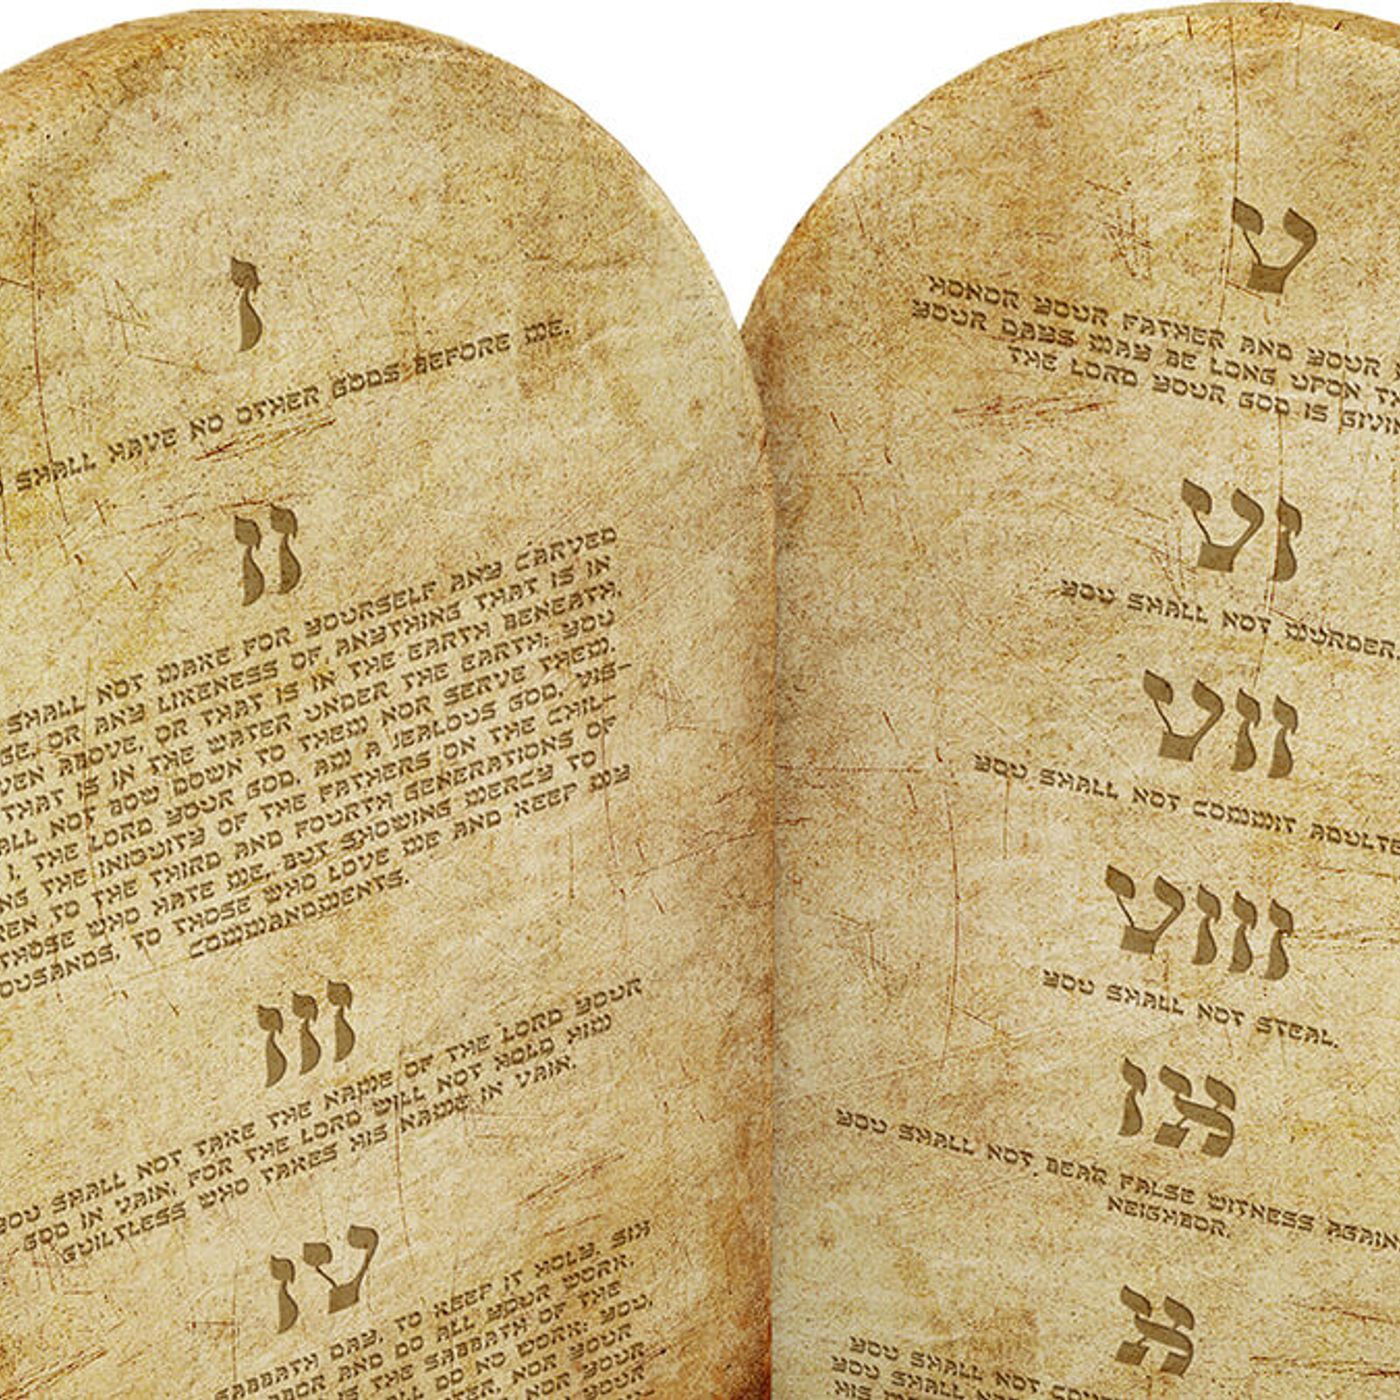 I
SHALL HAVE NO OTHER GODS BEFORE ME.
II
SHALL NOT MAKE FOR YOURSELF ANY CARVED
OR ANY LIKENESS OF ANYTHING THAT IS IN
ABOVE, OR THAT IS IN THE EARTH BENEATH,
THAT IS IN THE WATER UNDER THE EARTH; YOU
NOT BOW DOWN TO THEM NOR SERVE THEM.
I, THE LORD YOUR GOD, AM A JEALOUS GOD, VIS-
THE INIQUITY OF THE FATHERS ON THE CHIL-
TO THE THIRD AND FOURTH GENERATIONS OF
THOSE WHO HATE ME, BUT SHOWING MERCY TO
TO THOSE WHO LOVE ME AND KEEP MY
COMMANDMENTS.
III
YOU SHALL NOT TAKE THE NAME OF THE LORD YOUR
GOD IN VAIN, FOR THE LORD WILL NOT HOLD HIM
GUILTLESS WHO TAKES HIS NAME IN VAIN.
IV
SABBATH DAY, TO KEEP IT HOLY. SIX
AND DO ALL YOUR WORK,
IS THE SABBATH OF THE
DO NO WORK: YOU,
NOR YOUR
NOR YOUR
YOUR
V
HONOR YOUR FATHER AND YOUR
YOUR DAYS MAY BE LONG UPON
THE LORD YOUR GOD IS
VI
YOU SHALL NOT MURDER.
VII
YOU SHALL NOT COMMIT
VIII
YOU SHALL NOT STEAL.
IX
YOU SHALL NOT BEAR FALSE WITNESS
NEIGHBOR.
X
YOU SHALL NOT
YOU SHALL
HIS